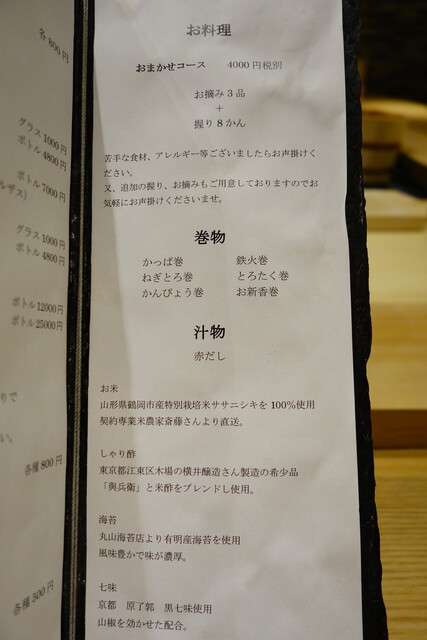 各800円
グラス1000円
ボトル4800円
ボトル7000円
グラス1000円
ボトル4800円
ボトル12000円
ボトル25000円
各種800円
各種500円
お料理
おまかせコース 4000円税別
お摘み3品
+
握り8かん
苦手な食材、アレルギー等ございましたらお声掛けく
ださい。
又、追加の握り、お摘みもご用意しておりますのでお
気軽にお声掛けくださいませ。
巻物
かっぱ巻 鉄火巻
ねぎとろ巻 とろたく巻
かんぴょう巻 お新香巻
汁物
赤だし
お米
山形県鶴岡市産特別栽培米ササニシキを100%使用
契約専業米農家斎藤さんより直送。
しゃり酢
東京都江東区木場の横井醸造さん製造の希少品
「與兵衛」と米酢をブレンドし使用。
海苔
丸山海苔店より有明産海苔を使用
風味豊かで味が濃厚。
七味
京都 原了郭 黒七味使用
山椒を効かせた配合。